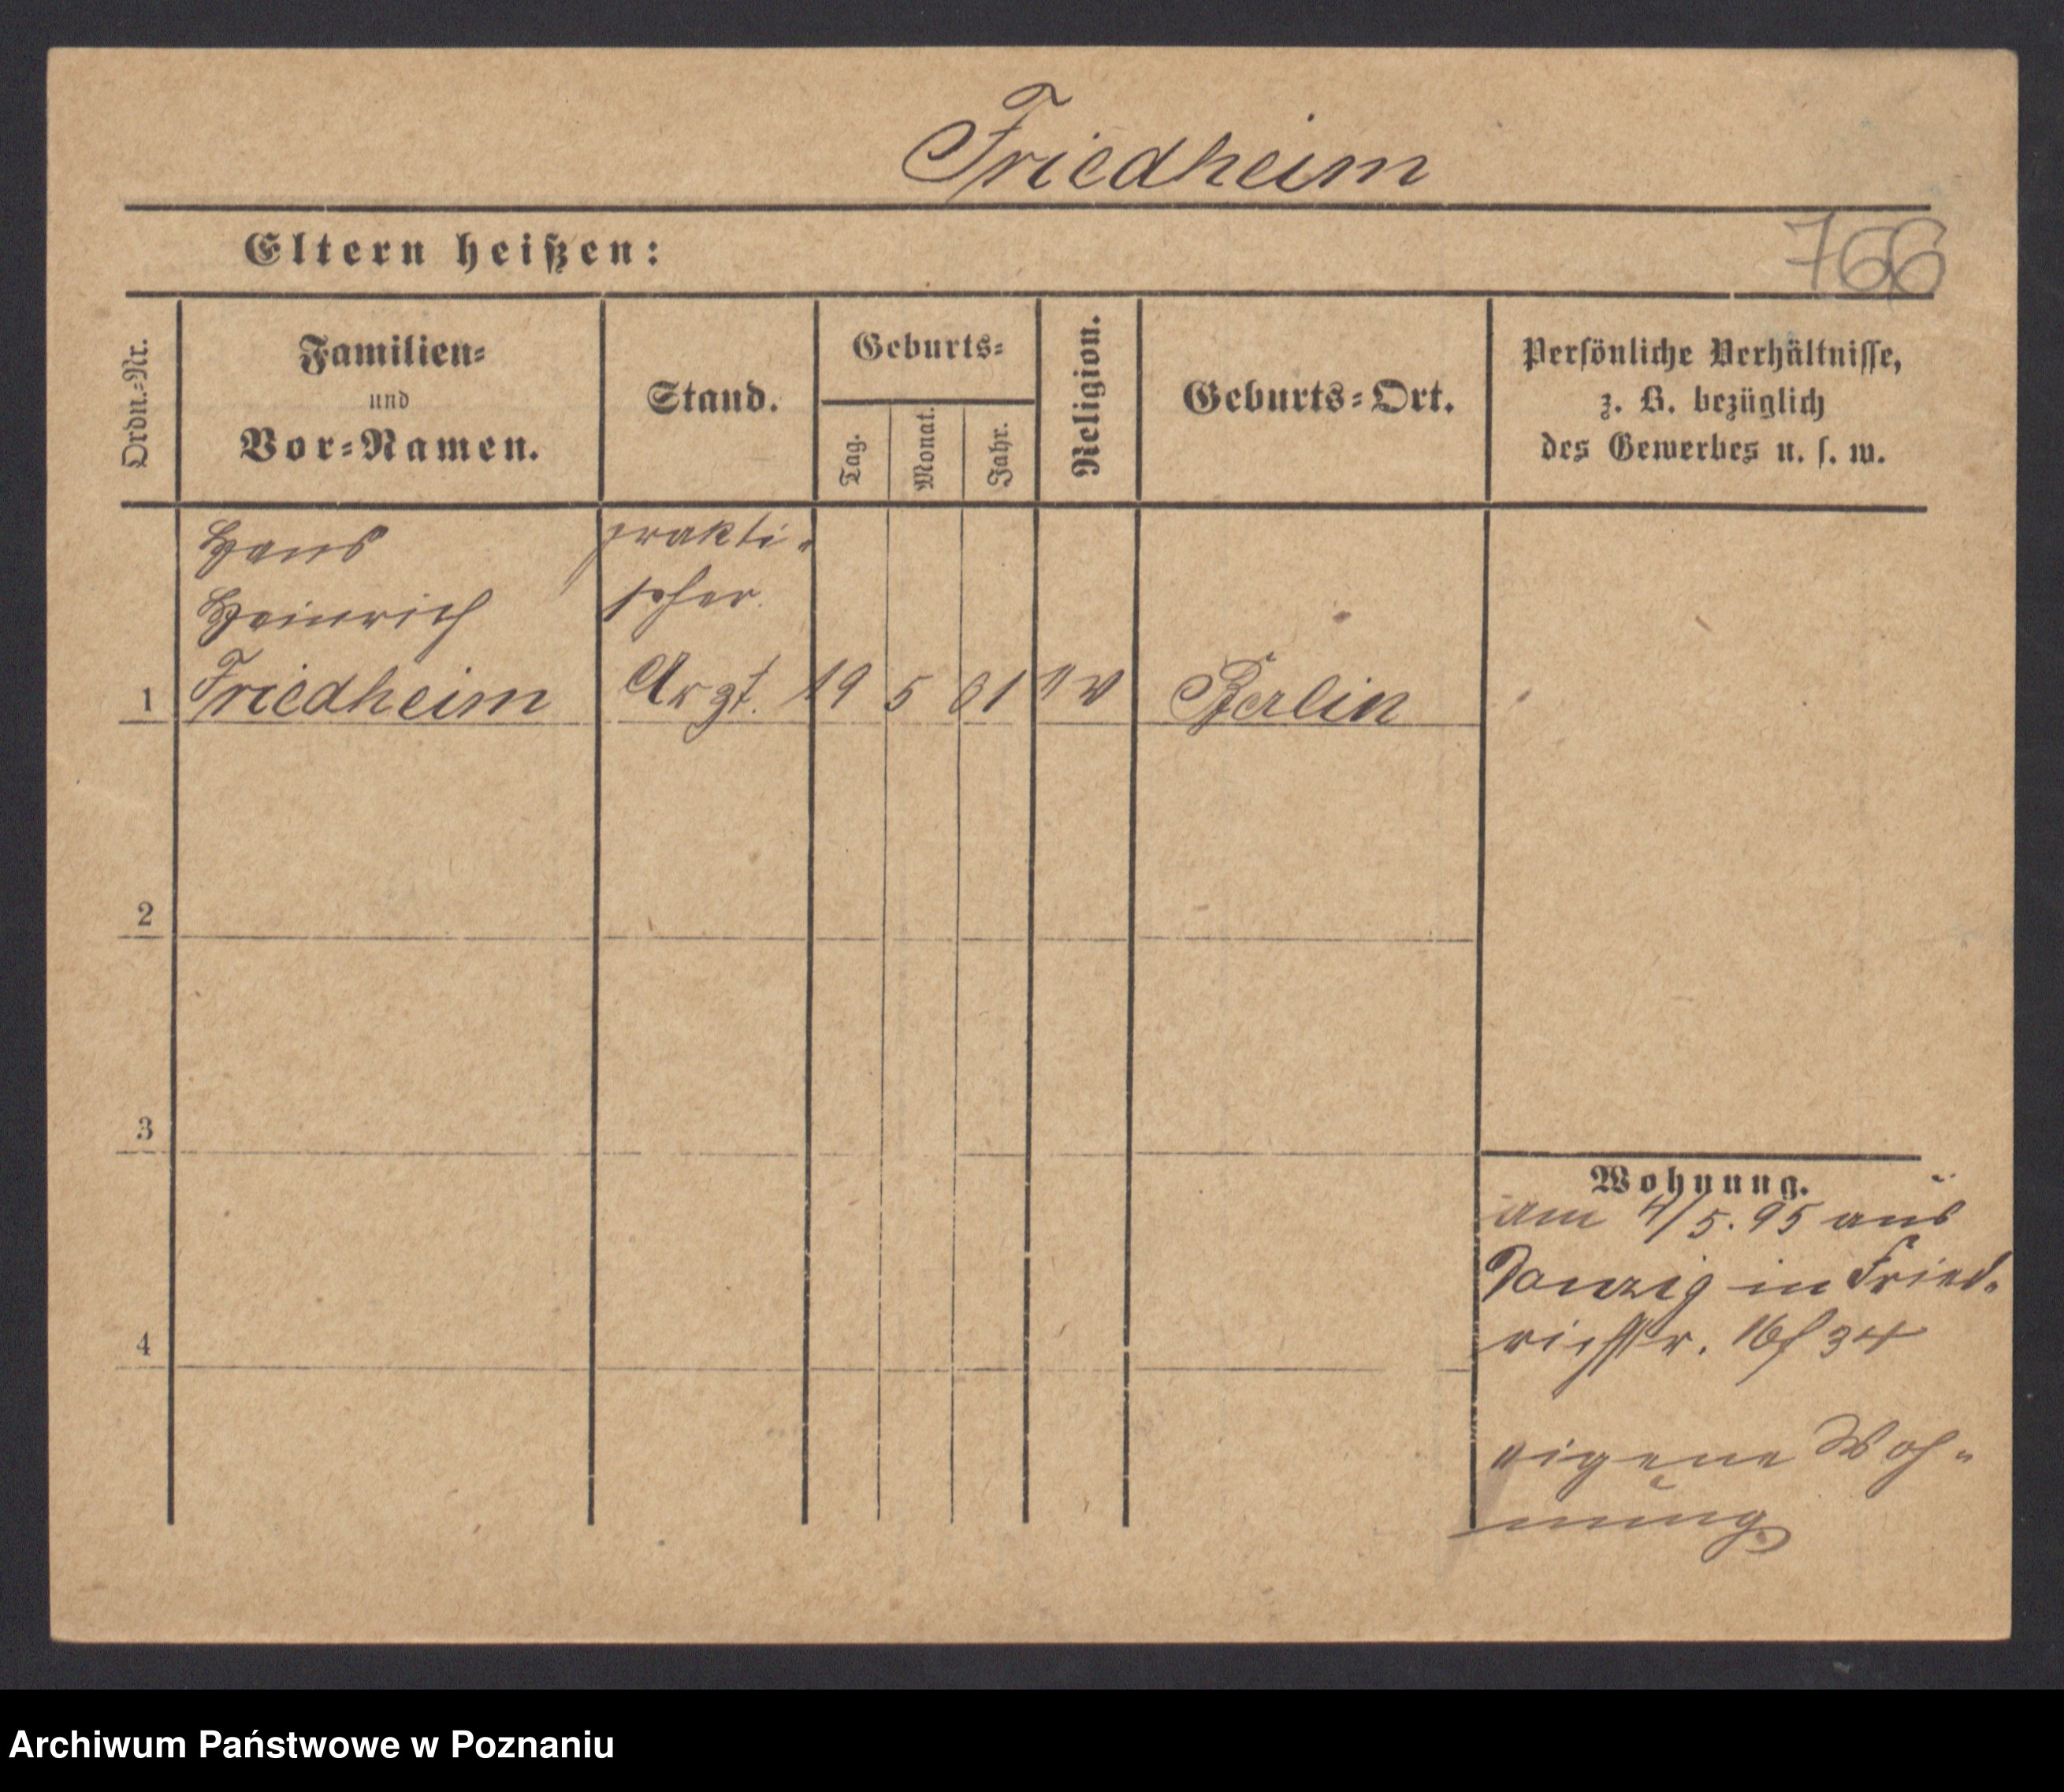 Friedheim
Eltern heißen:
766
Ordn.-Nr.
Familien-
und
Vor-Namen.
Stand.
Geburts-
Tag.
Monat.
Jahr.
Religion.
Geburts-Ort.
Persönliche Verhältnisse,
z. B. bezüglich
des Gewerbes u. s. w.
Hans
Heinrich
1 Friedheim
prakti-
scher
Arzt. 19 5 61 ev Berlin
2
3
4
Wohnung.
am 4/5. 95 aus
Danzig in Fried-
richstr. 34
eigene Woh-
nung
Archiwum Państwowe w Poznaniu